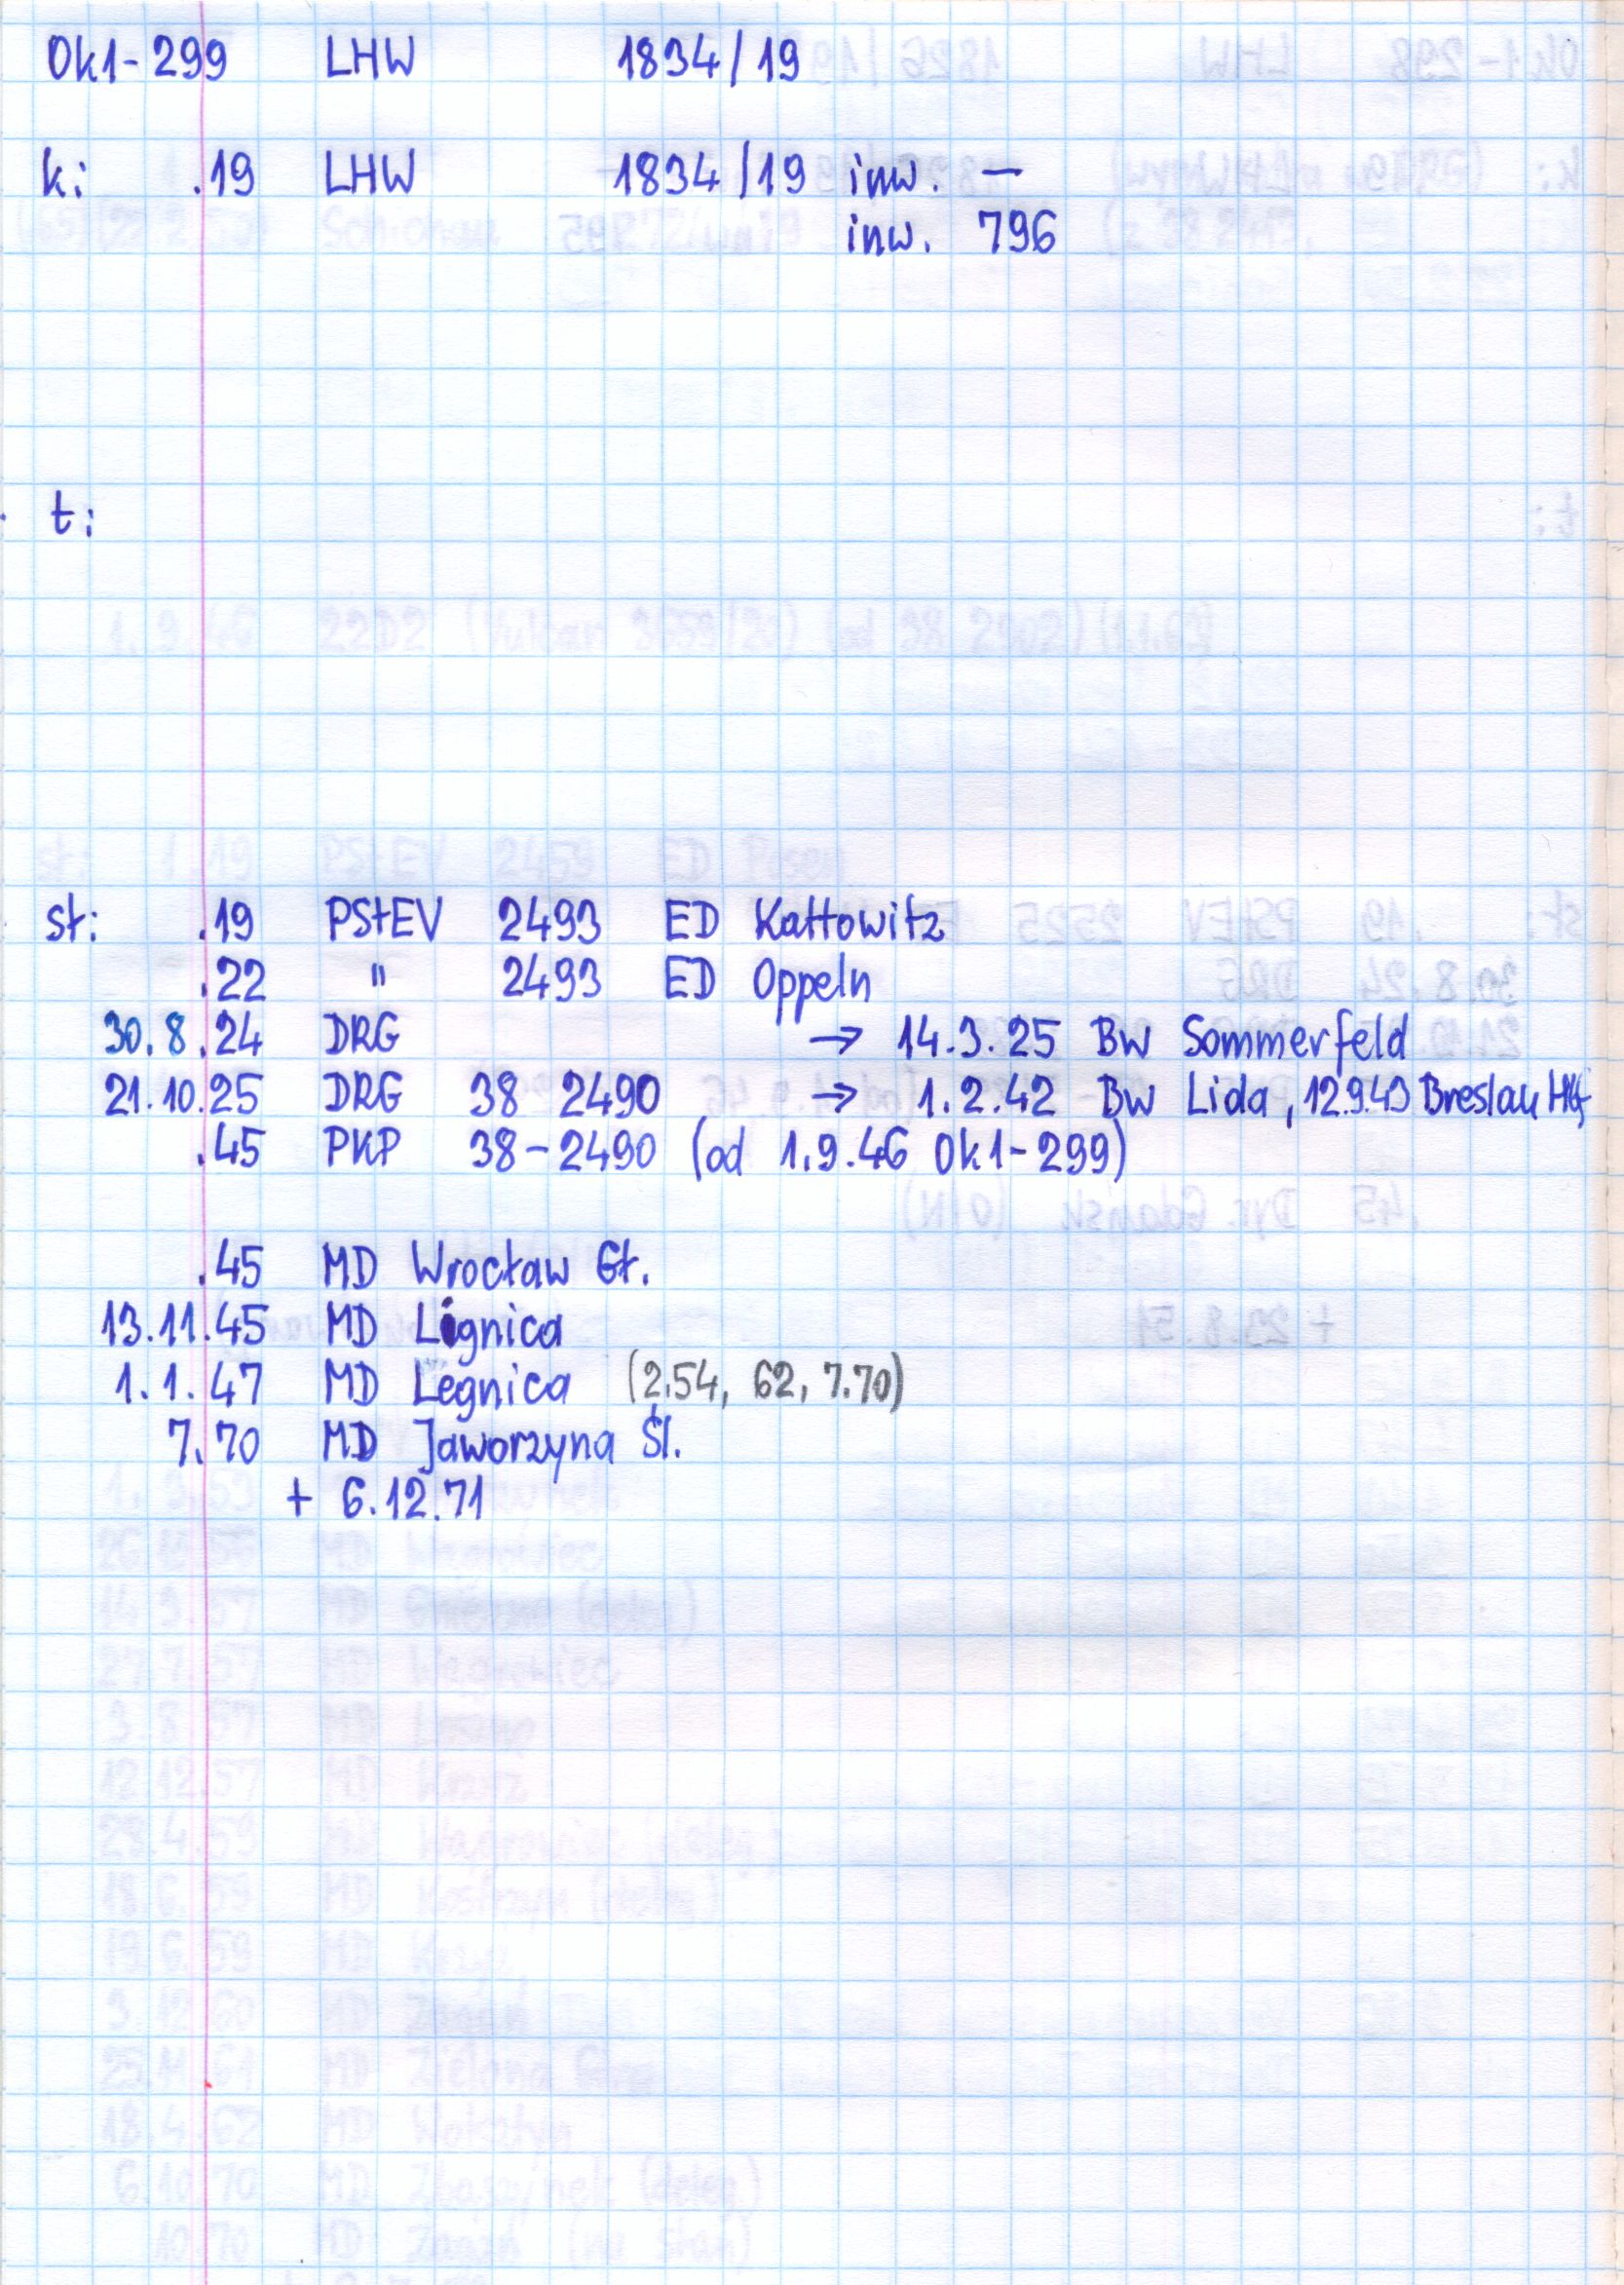 Ok1-299 LHW 1834/19
k: .19 LHW 1834/19 inw. —
inw. 796
t:
st: .19 PStEV 2493 ED Kattowitz
.22 " 2493 ED Oppeln
30.8.24 DRG → 14.3.25 Bw Sommerfeld
21.10.25 DRG 38 2490 → 1.2.42 Bw Lida, 12.9.43 Breslau Hbf
.45 PKP 38-2490 (od 1.9.46 Ok1-299)
.45 MD Wrocław Gł.
13.11.45 MD Lignica
1.1.47 MD Legnica (2.54, 62, 7.70)
7.70 MD Jaworzyna Śl.
+ 6.12.71